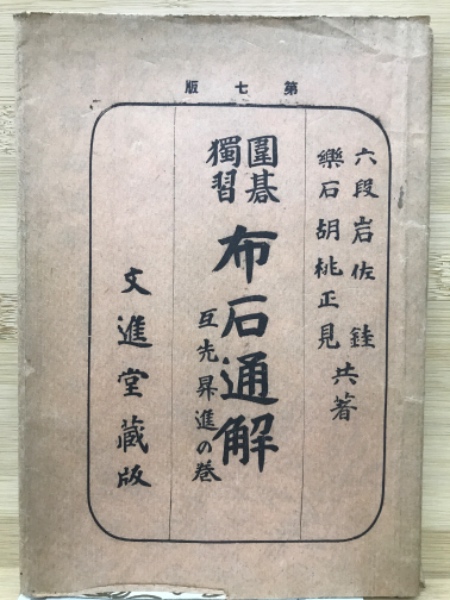 第七版
六段岩佐銈
樂石胡桃正見
共著
圍碁
獨習
布石通解
互先昇進の巻
文進堂藏版